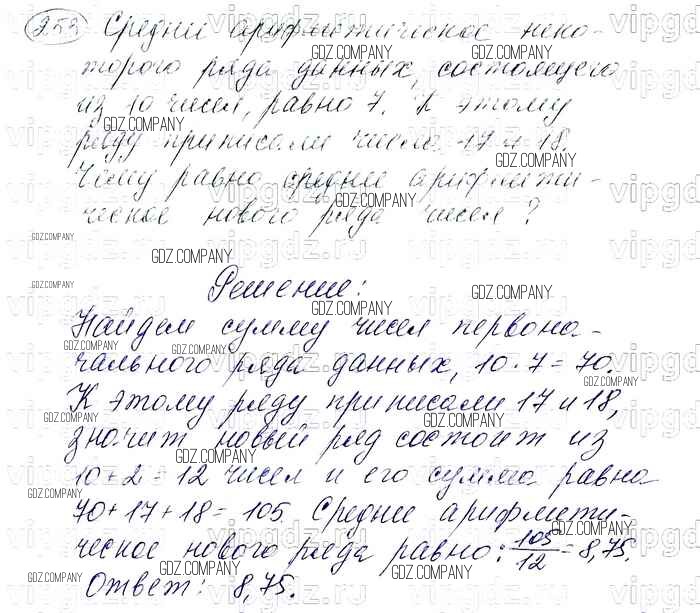 253 Среднее арифметическое неко-
торого ряда данных, состоящего
из 10 чисел, равно 7. К этому
ряду приписали числа 17 и 18.
Чему равно среднее арифмети-
ческое нового ряда чисел?
Решение:
Найдем сумму чисел первона-
чального ряда данных, 10 · 7 = 70.
К этому ряду приписали 17 и 18,
значит новый ряд состоит из
10 + 2 = 12 чисел и его сумма равна
70 + 17 + 18 = 105. Среднее арифмети-
ческое нового ряда равно: 105/12 = 8,75.
Ответ: 8,75.
GDZ.COMPANY
vipgdz.ru